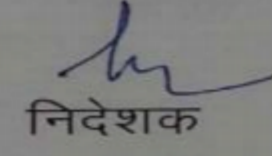 निदेशक